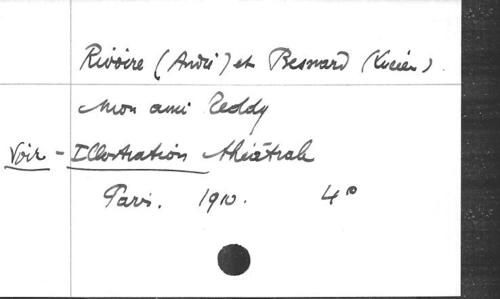 Rivoire (André) et Besnard (Lucien).
Mon ami Teddy
Voir - Illustration théâtrale
Paris. 1910. 4°